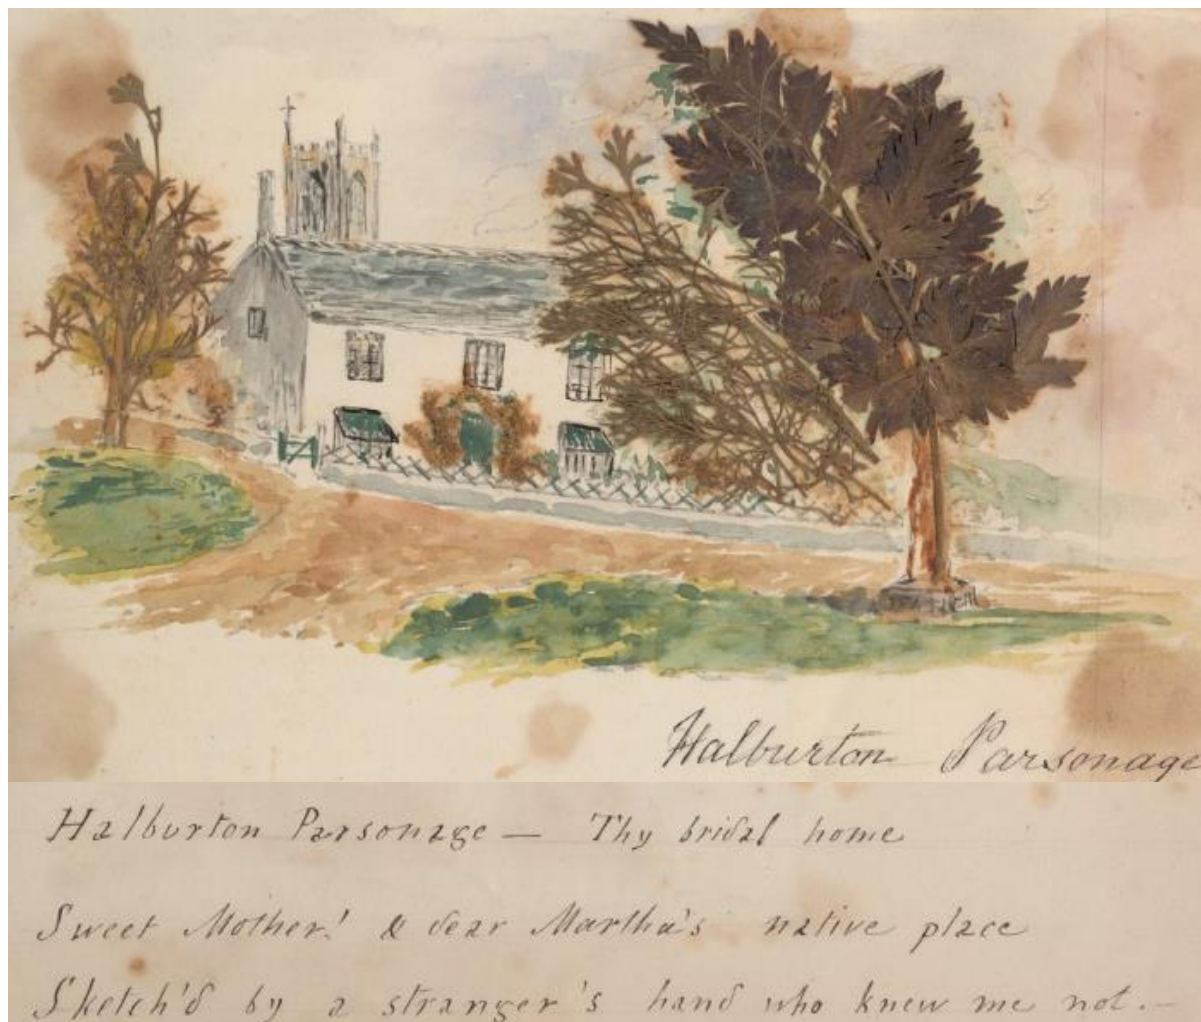 Halburton Parsonage
Halburton Parsonage — Thy bridal home
Sweet Mother! & dear Martha's native place
Sketch'd by a stranger's hand who knew me not.—